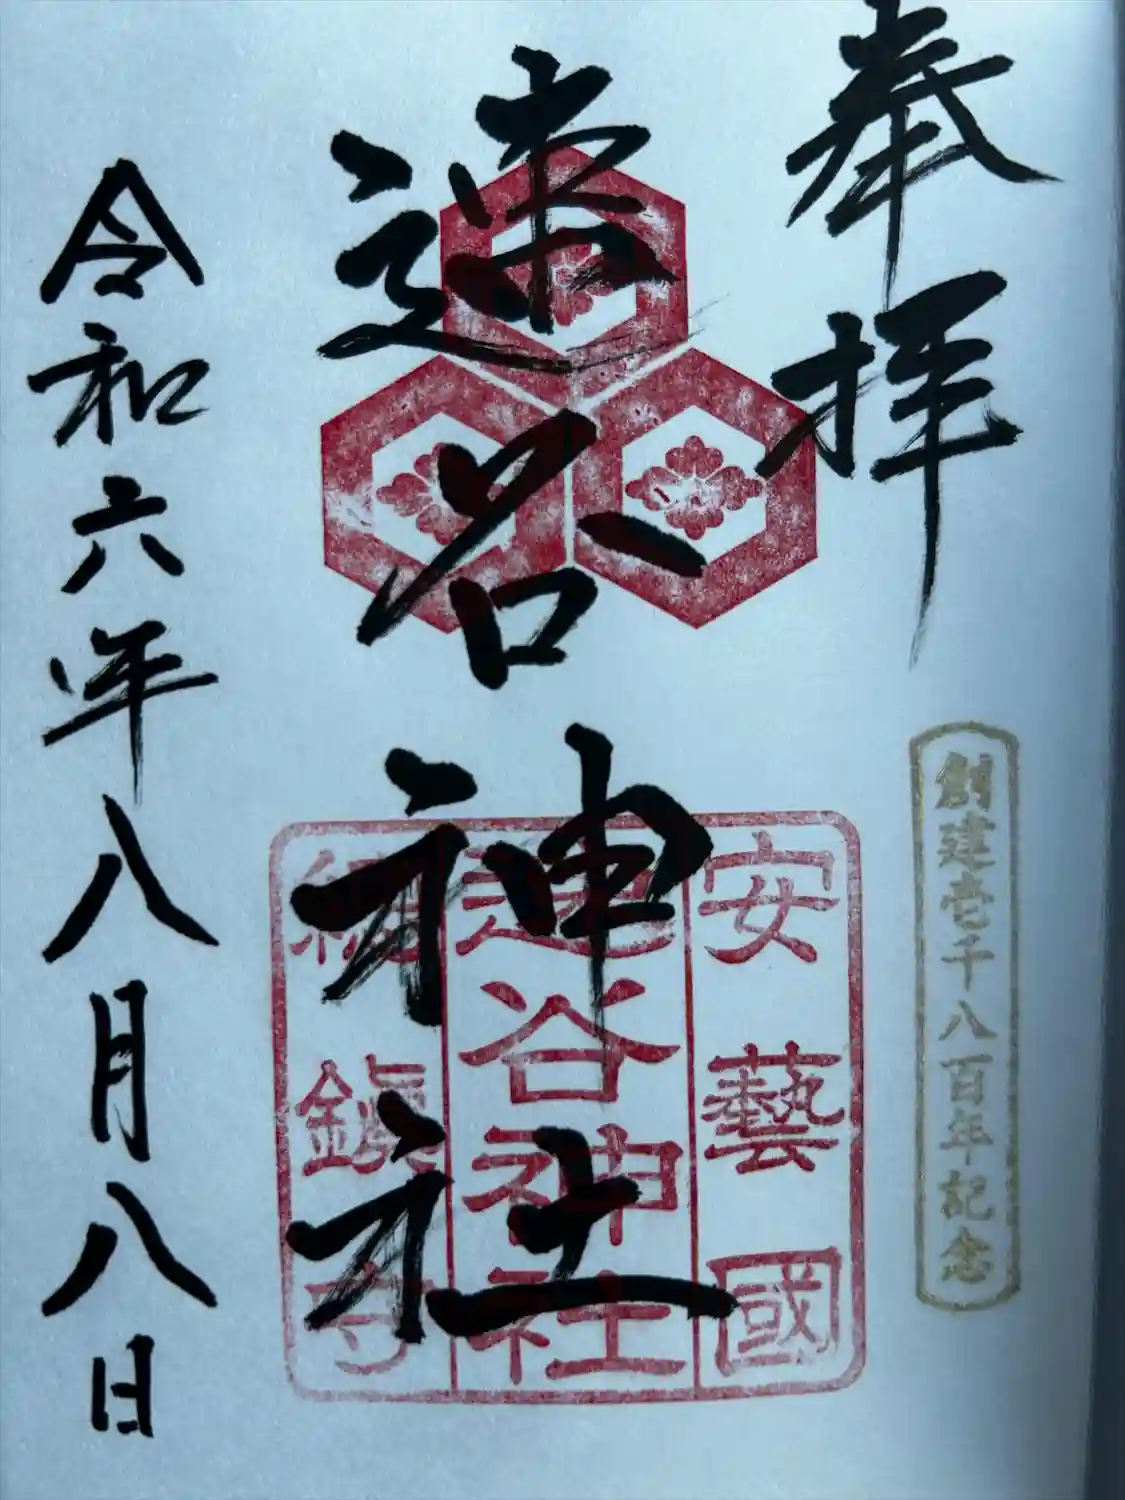 奉拝
創建壱千八百年記念
速谷神社
安藝國
速谷神社
總鎭守
令和六年八月八日